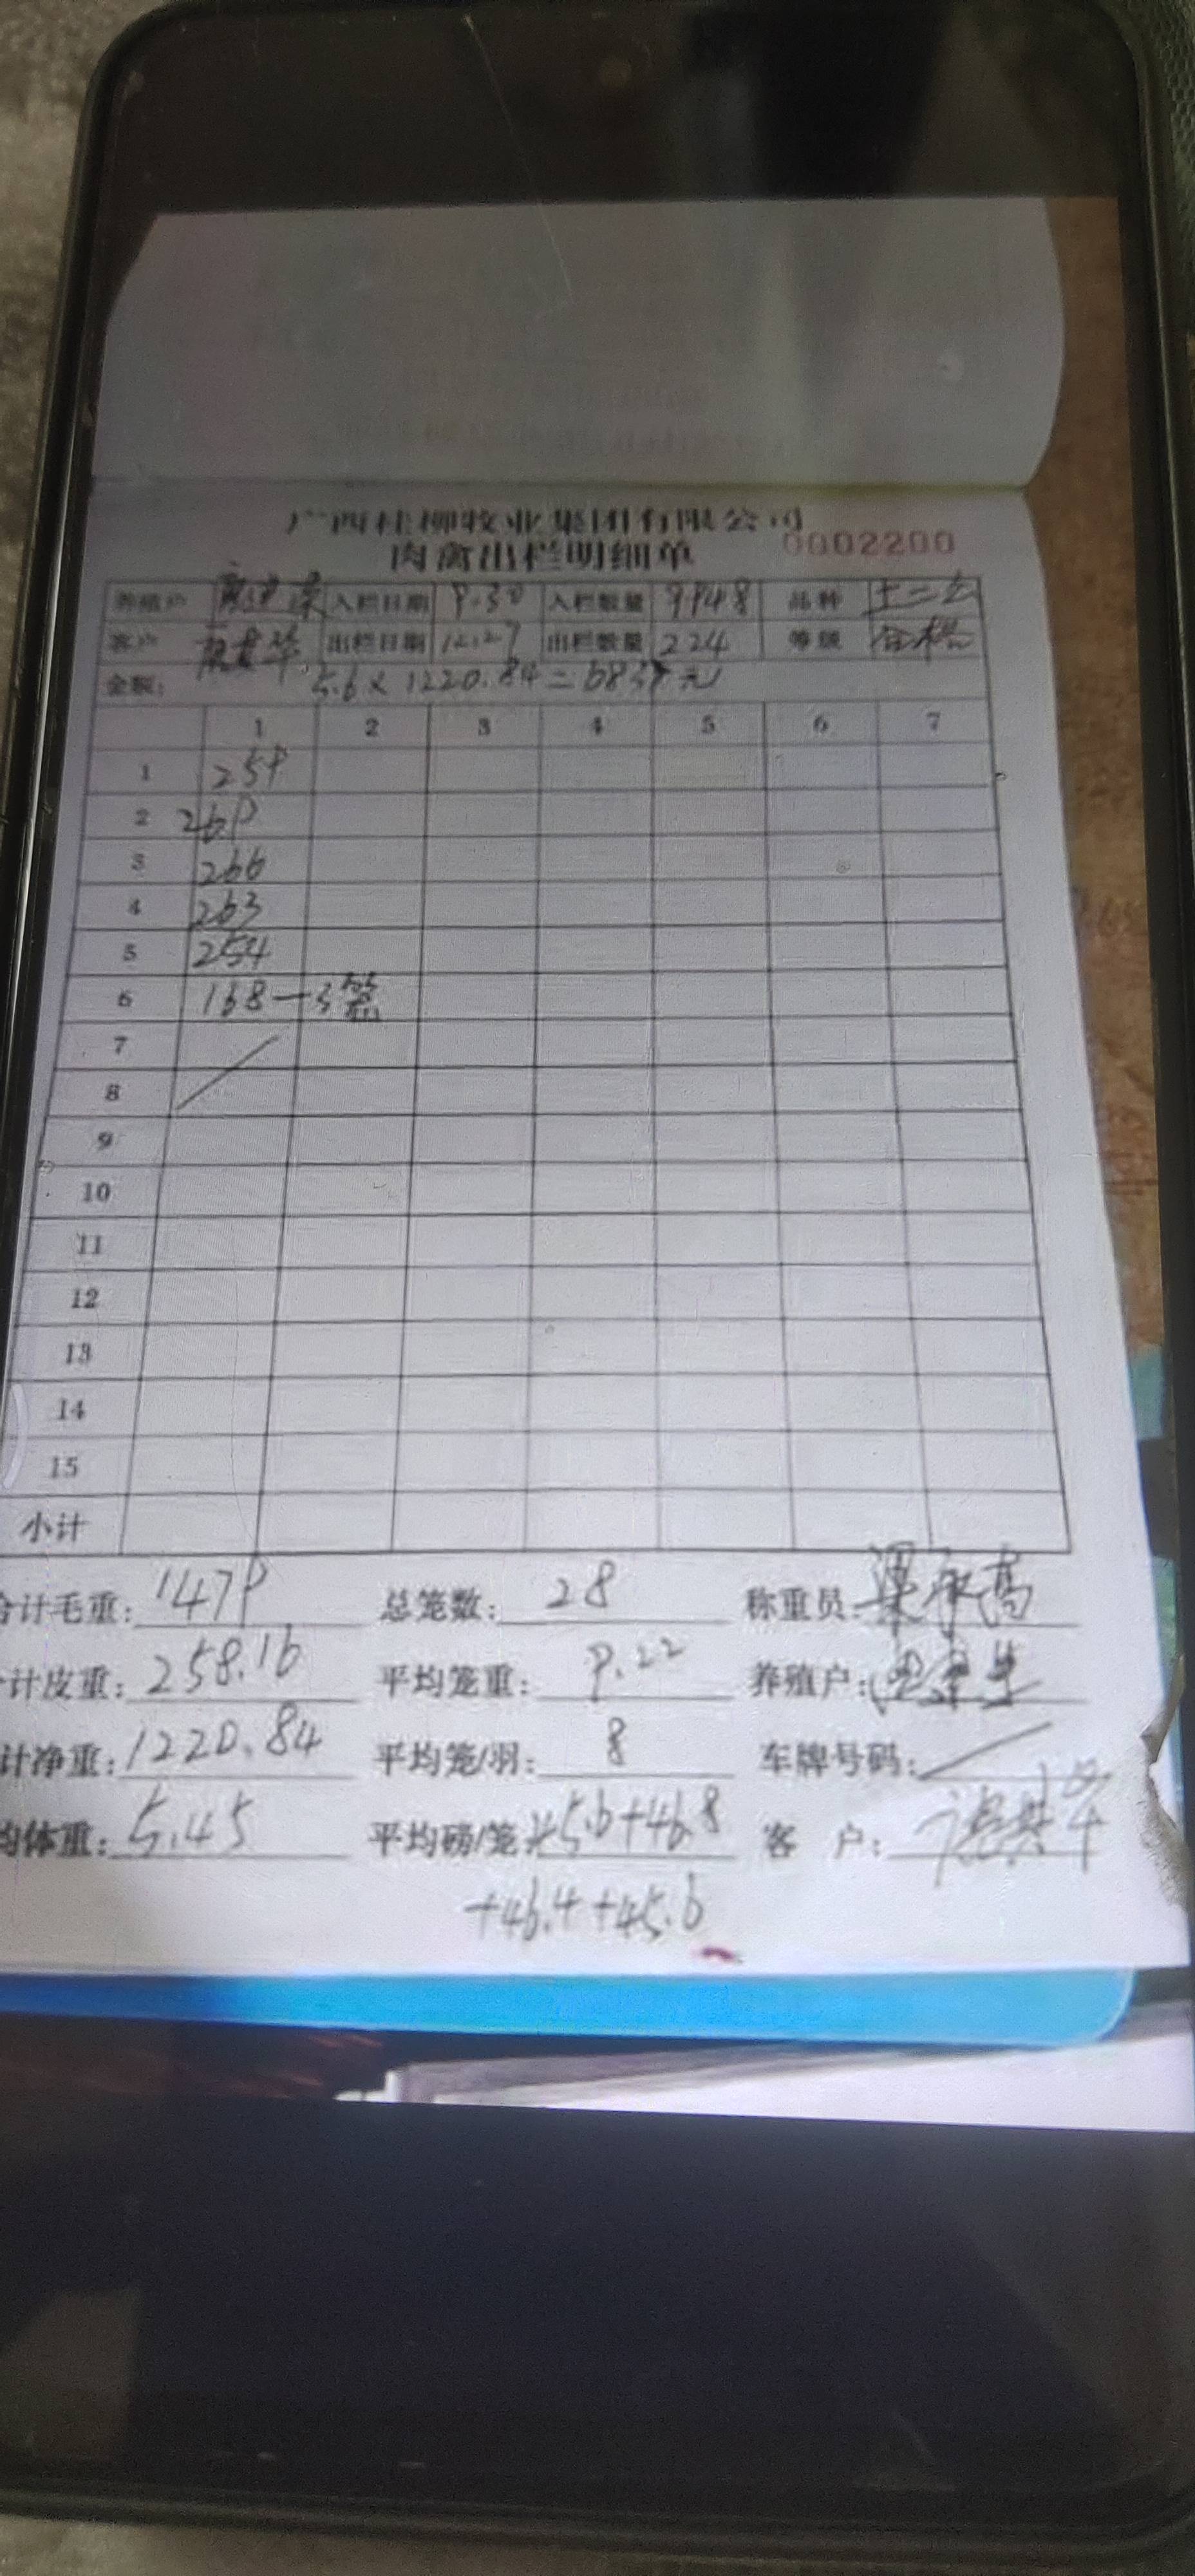 广西桂柳牧业集团有限公司
肉禽出栏明细单 0002200
养殖户 入栏日期 9.30 入栏数量 9948 品种 土二公
客户 出栏日期 12.27 出栏数量 224 等级 合格
金额: 5.6×1220.84=6837元
1 2 3 4 5 6 7
1 259
2 269
3 266
4 263
5 254
6 168—3笼
7
8
9
10
11
12
13
14
15
小计
合计毛重: 1479 总笼数: 28 称重员:
计皮重: 258.16 平均笼重: 9.22 养殖户:
计净重: 1220.84 平均笼/羽: 8 车牌号码:
均体重: 5.45 平均磅/笼: 45.6+46.8 客 户:
+46.4+45.6